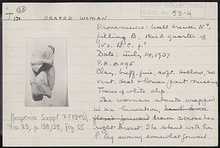 T 120 DRAPED WOMAN
53-4
Provenience: Wall trench W.
filling B, third quarter of
IV c. B.C.
Date: July 14, 1937
P.H. 0.095
Clay, buff, fine, soft, hollow, no
vent, neat or bone, part missing
Traces of white slip.
The woman stands wrapped
in a himation,
drawn across her
right breast. She stands with her
l. leg somewhat forward.
Hesperia Suppl. 7 (1943)
no. 35, p. 138/139, Fig 55